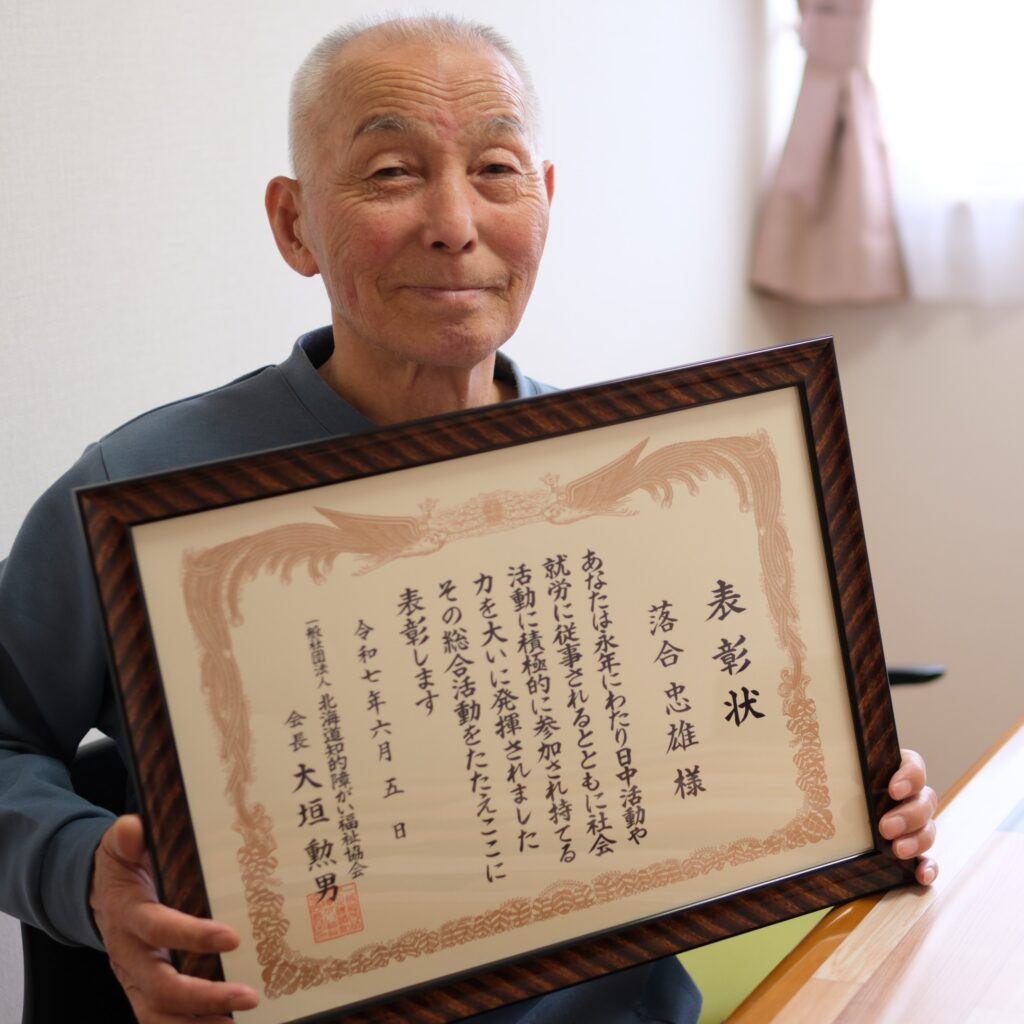 表彰状
落合忠雄様
あなたは永年にわたり日中活動や
就労に従事されるとともに社会
活動に積極的に参加され持てる
力を大いに発揮されました
その総合活動をたたえここに
表彰します
令和七年六月五日
一般社団法人 北海道知的障がい福祉協会
会長 大垣勲男